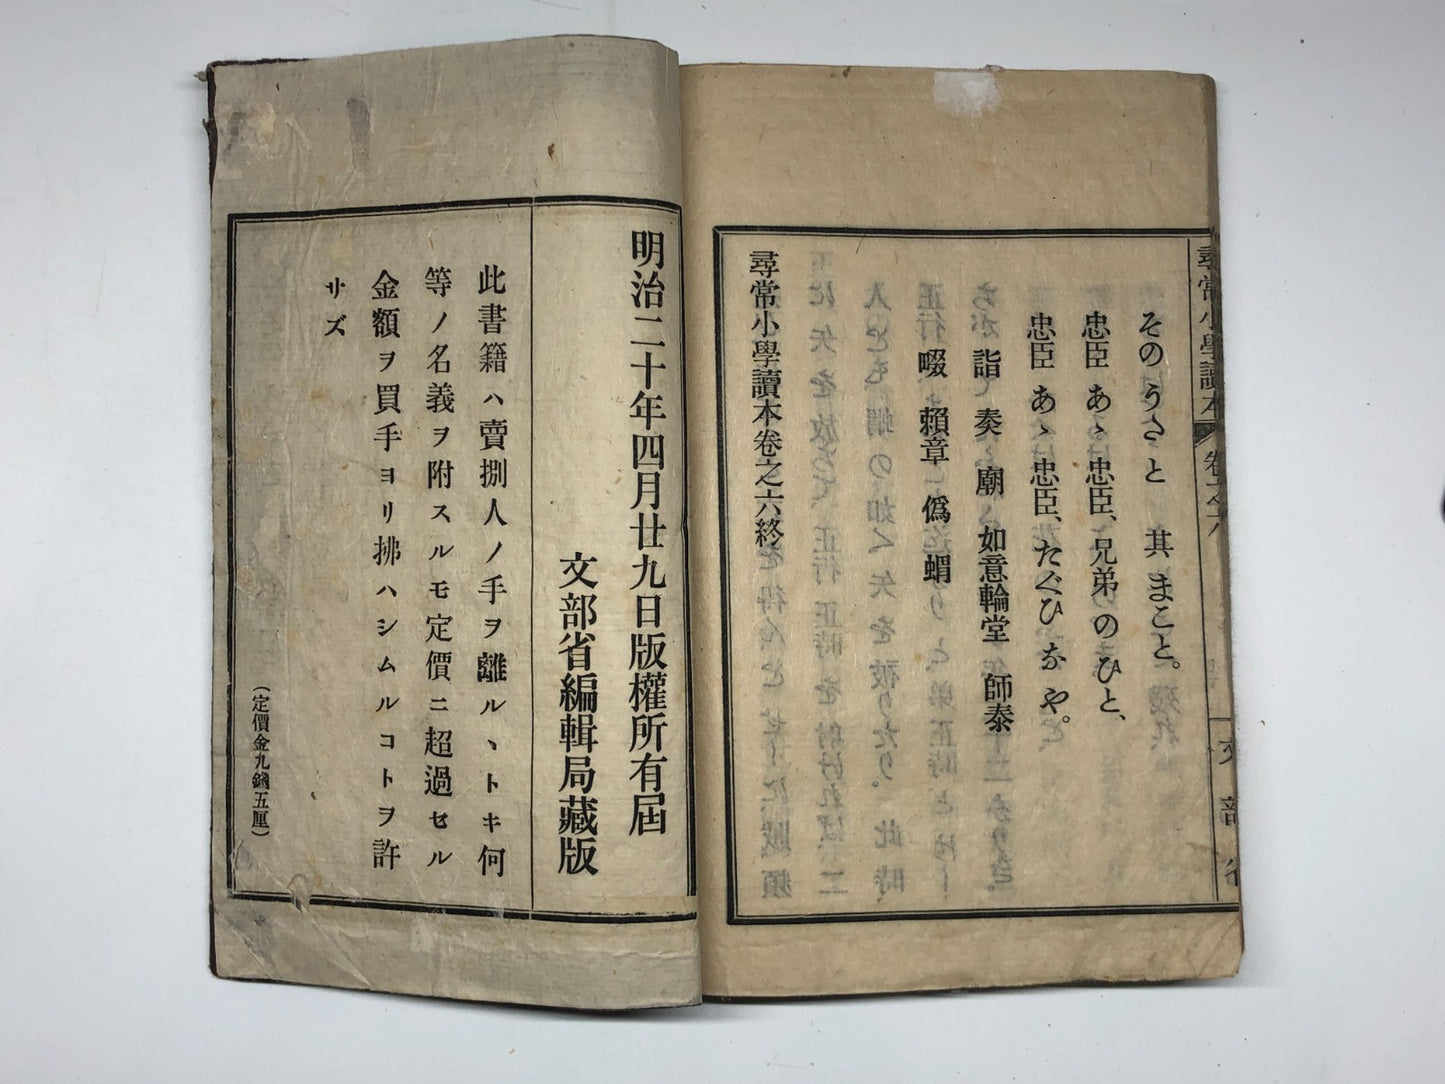 そのうさと 其まこと。
忠臣あゝ忠臣、兄弟のひと、
忠臣あゝ忠臣、たぐひなや。
詣 奏 廟 如意輪堂 師泰
啜 賴章 僞 蝟
尋常小學讀本卷之六終
尋常小學讀本
卷之六
文部省
明治二十年四月廿九日版權所有屆
文部省編輯局藏版
此書籍ハ賣捌人ノ手ヲ離ルヽトキ何
等ノ名義ヲ附スルモ定價ニ超過セル
金額ヲ買手ヨリ拂ハシムルコトヲ許
サズ
(定價金九錢五厘)